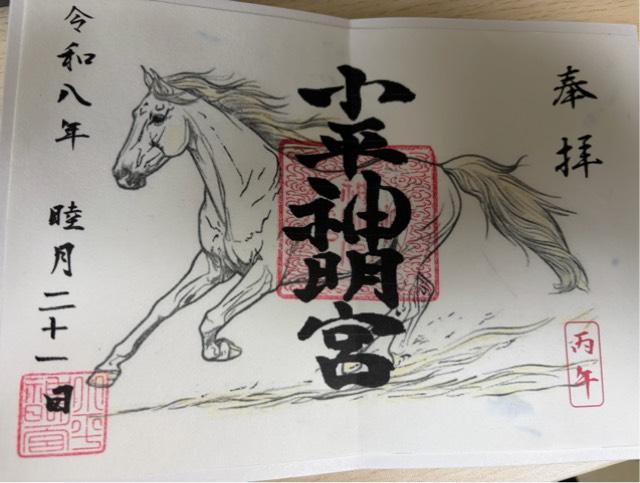 奉拝
丙午
小平神明宮
令和八年 睦月二十一日